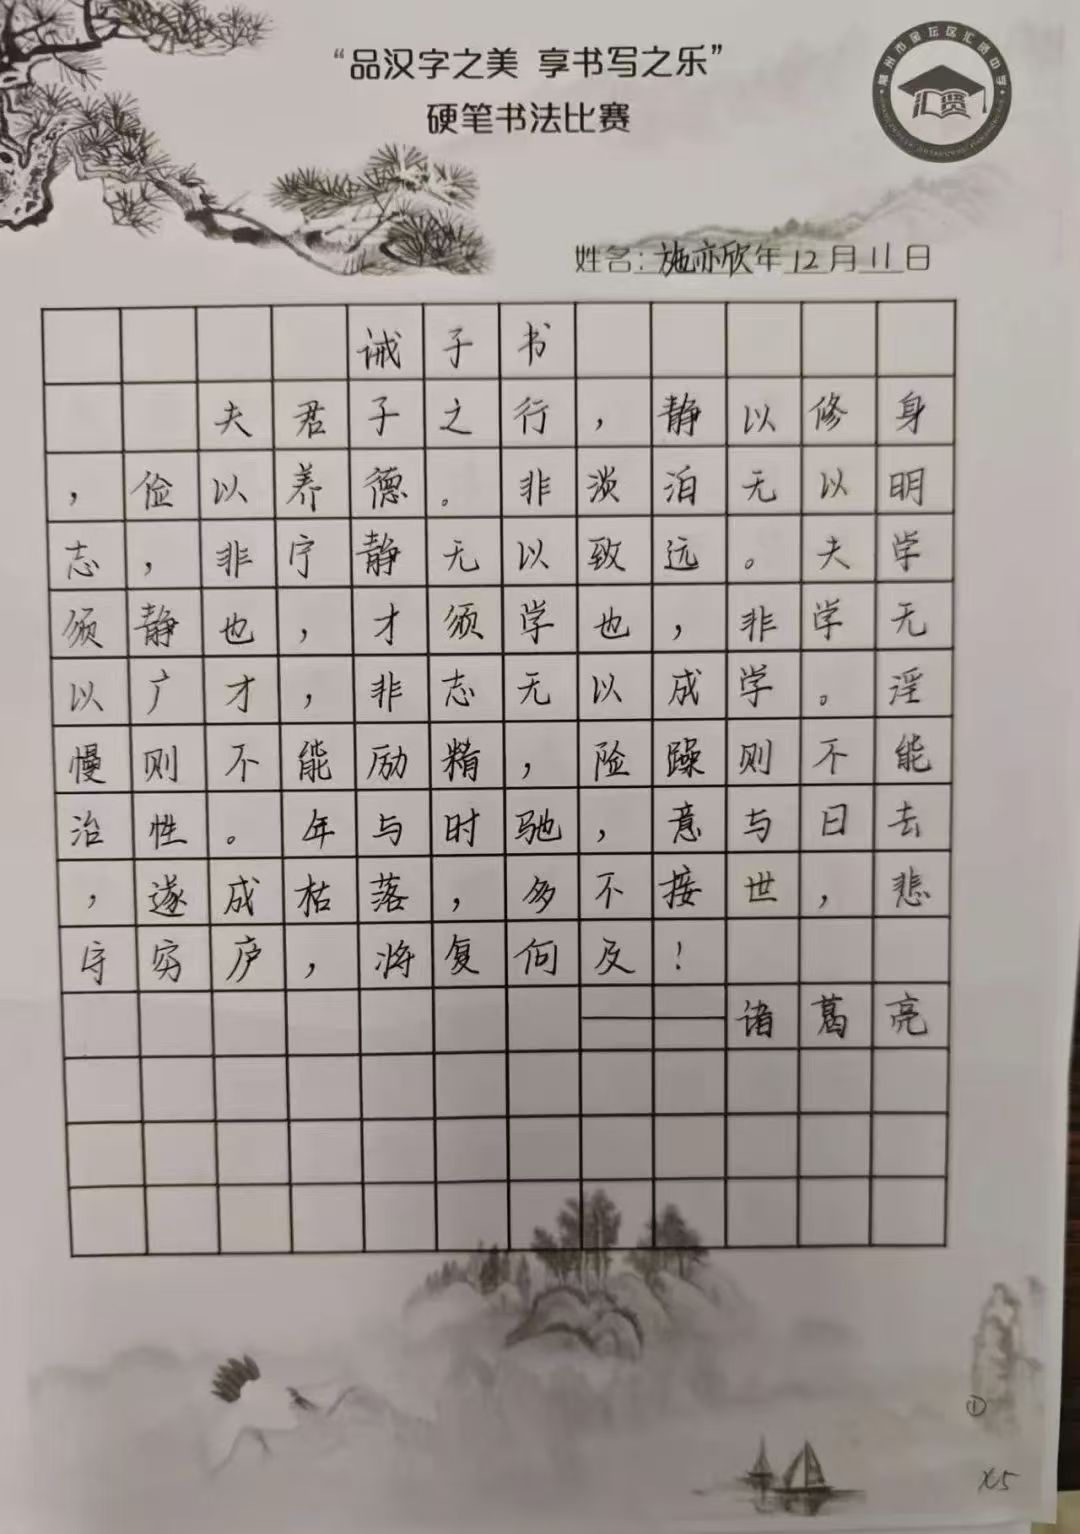 “品汉字之美 享书写之乐”
硬笔书法比赛
常州市金坛区汇贤中学
汇贤
姓名：施亦欣年12月11日
诫子书
夫君子之行，静以修身
，俭以养德。非淡泊无以明
志，非宁静无以致远。夫学
须静也，才须学也，非学无
以广才，非志无以成学。淫
慢则不能励精，险躁则不能
治性。年与时驰，意与日去
，遂成枯落，多不接世，悲
守穷庐，将复何及！
——诸葛亮
①
X5